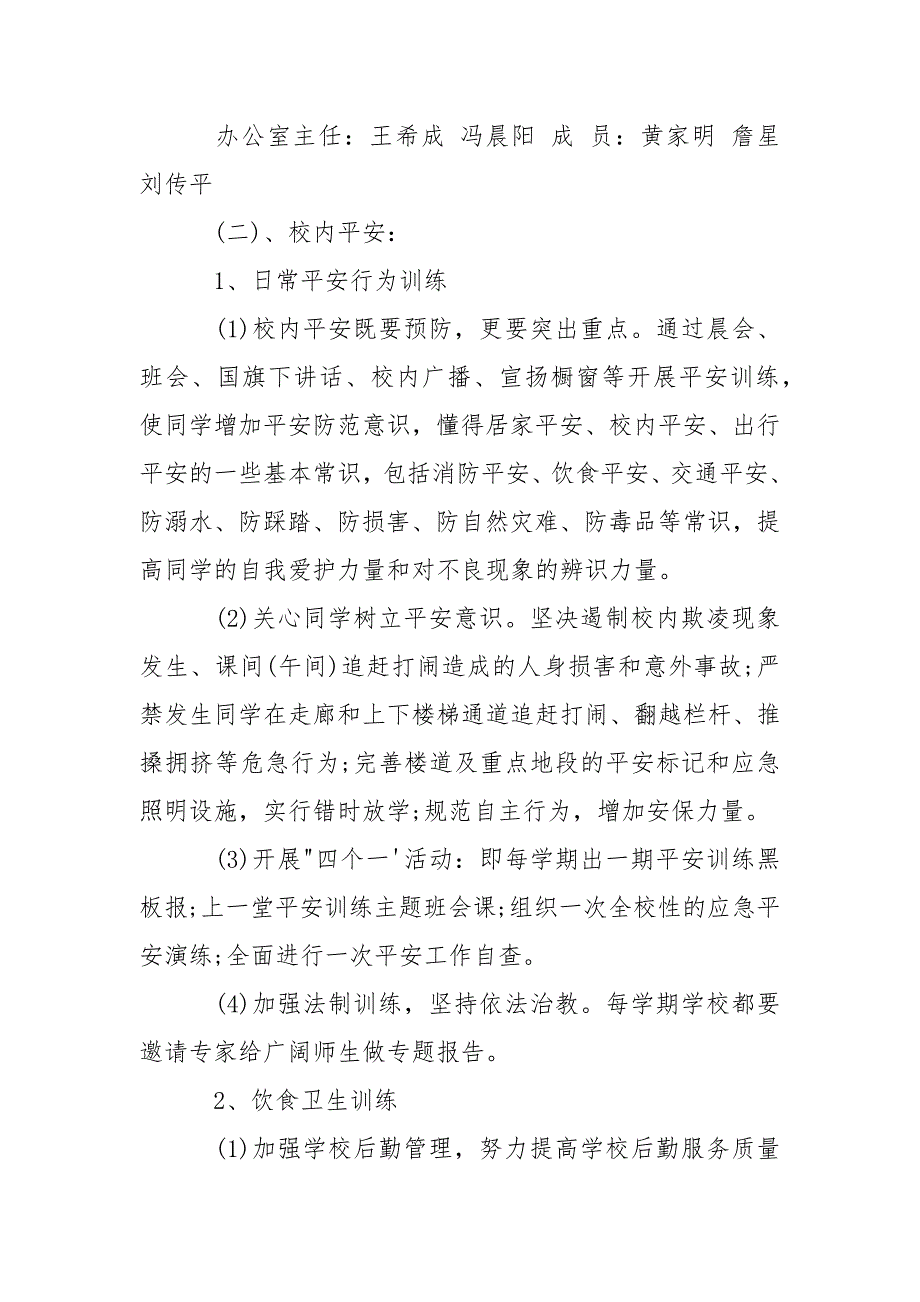 办公室主任：王希成 冯晨阳 成 员：黄家明 詹星
刘传平
(二)、校内平安：
1、日常平安行为训练
(1)校内平安既要预防，更要突出重点。通过晨会、
班会、国旗下讲话、校内广播、宣扬橱窗等开展平安训练，
使同学增加平安防范意识，懂得居家平安、校内平安、出行
平安的一些基本常识，包括消防平安、饮食平安、交通平安、
防溺水、防踩踏、防损害、防自然灾难、防毒品等常识，提
高同学的自我爱护力量和对不良现象的辨识力量。
(2)关心同学树立平安意识。坚决遏制校内欺凌现象
发生、课间(午间)追赶打闹造成的人身损害和意外事故;严
禁发生同学在走廊和上下楼梯通道追赶打闹、翻越栏杆、推
搡拥挤等危急行为;完善楼道及重点地段的平安标记和应急
照明设施，实行错时放学;规范自主行为，增加安保力量。
(3)开展"四个一'活动：即每学期出一期平安训练黑
板报;上一堂平安训练主题班会课;组织一次全校性的应急平
安演练;全面进行一次平安工作自查。
(4)加强法制训练，坚持依法治教。每学期学校都要
邀请专家给广阔师生做专题报告。
2、饮食卫生训练
(1)加强学校后勤管理，努力提高学校后勤服务质量